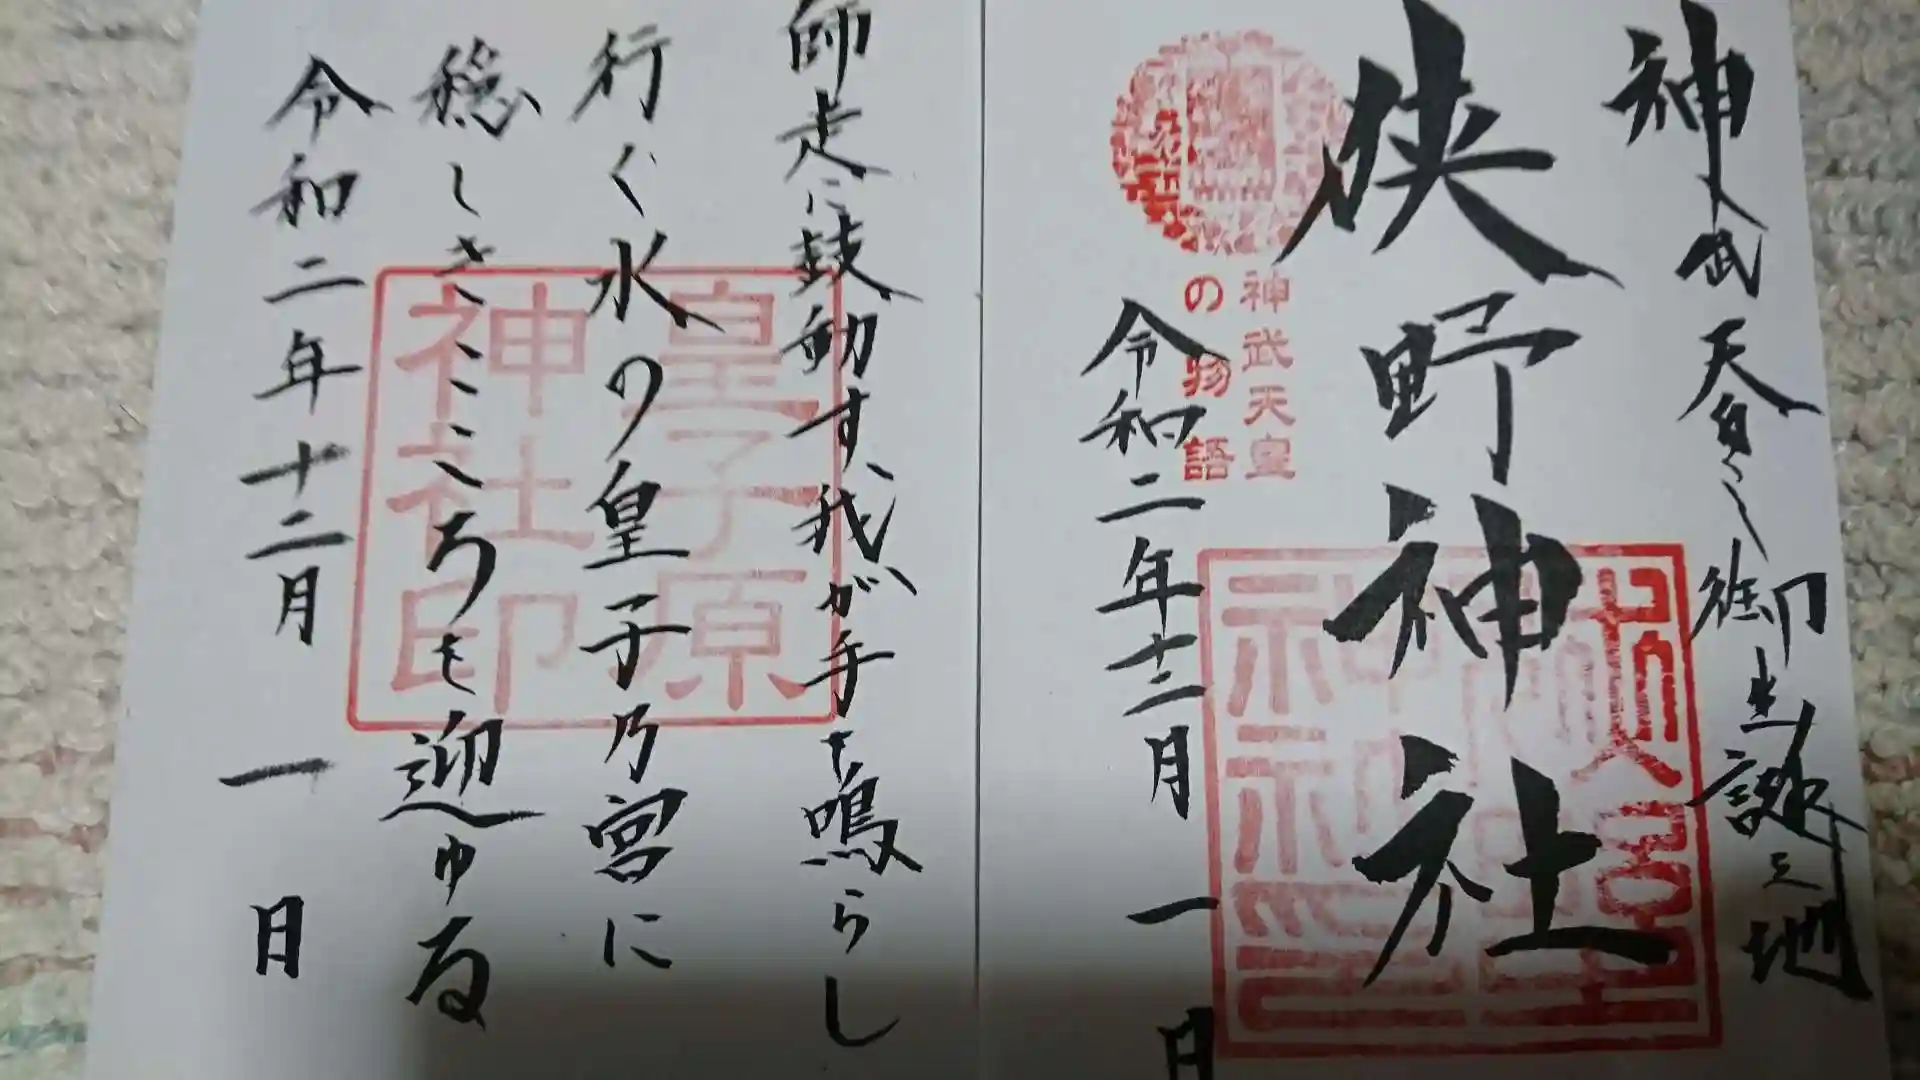 神武天皇之御生誕之地
狭野神社
神武天皇
の物語
令和二年十二月一日
狭野
神社
師走に鼓動す、我が手も鳴らし
行く水の皇子乃宮に
穏しきこころも迎ゆる
令和二年十二月一日
皇子原
神社印